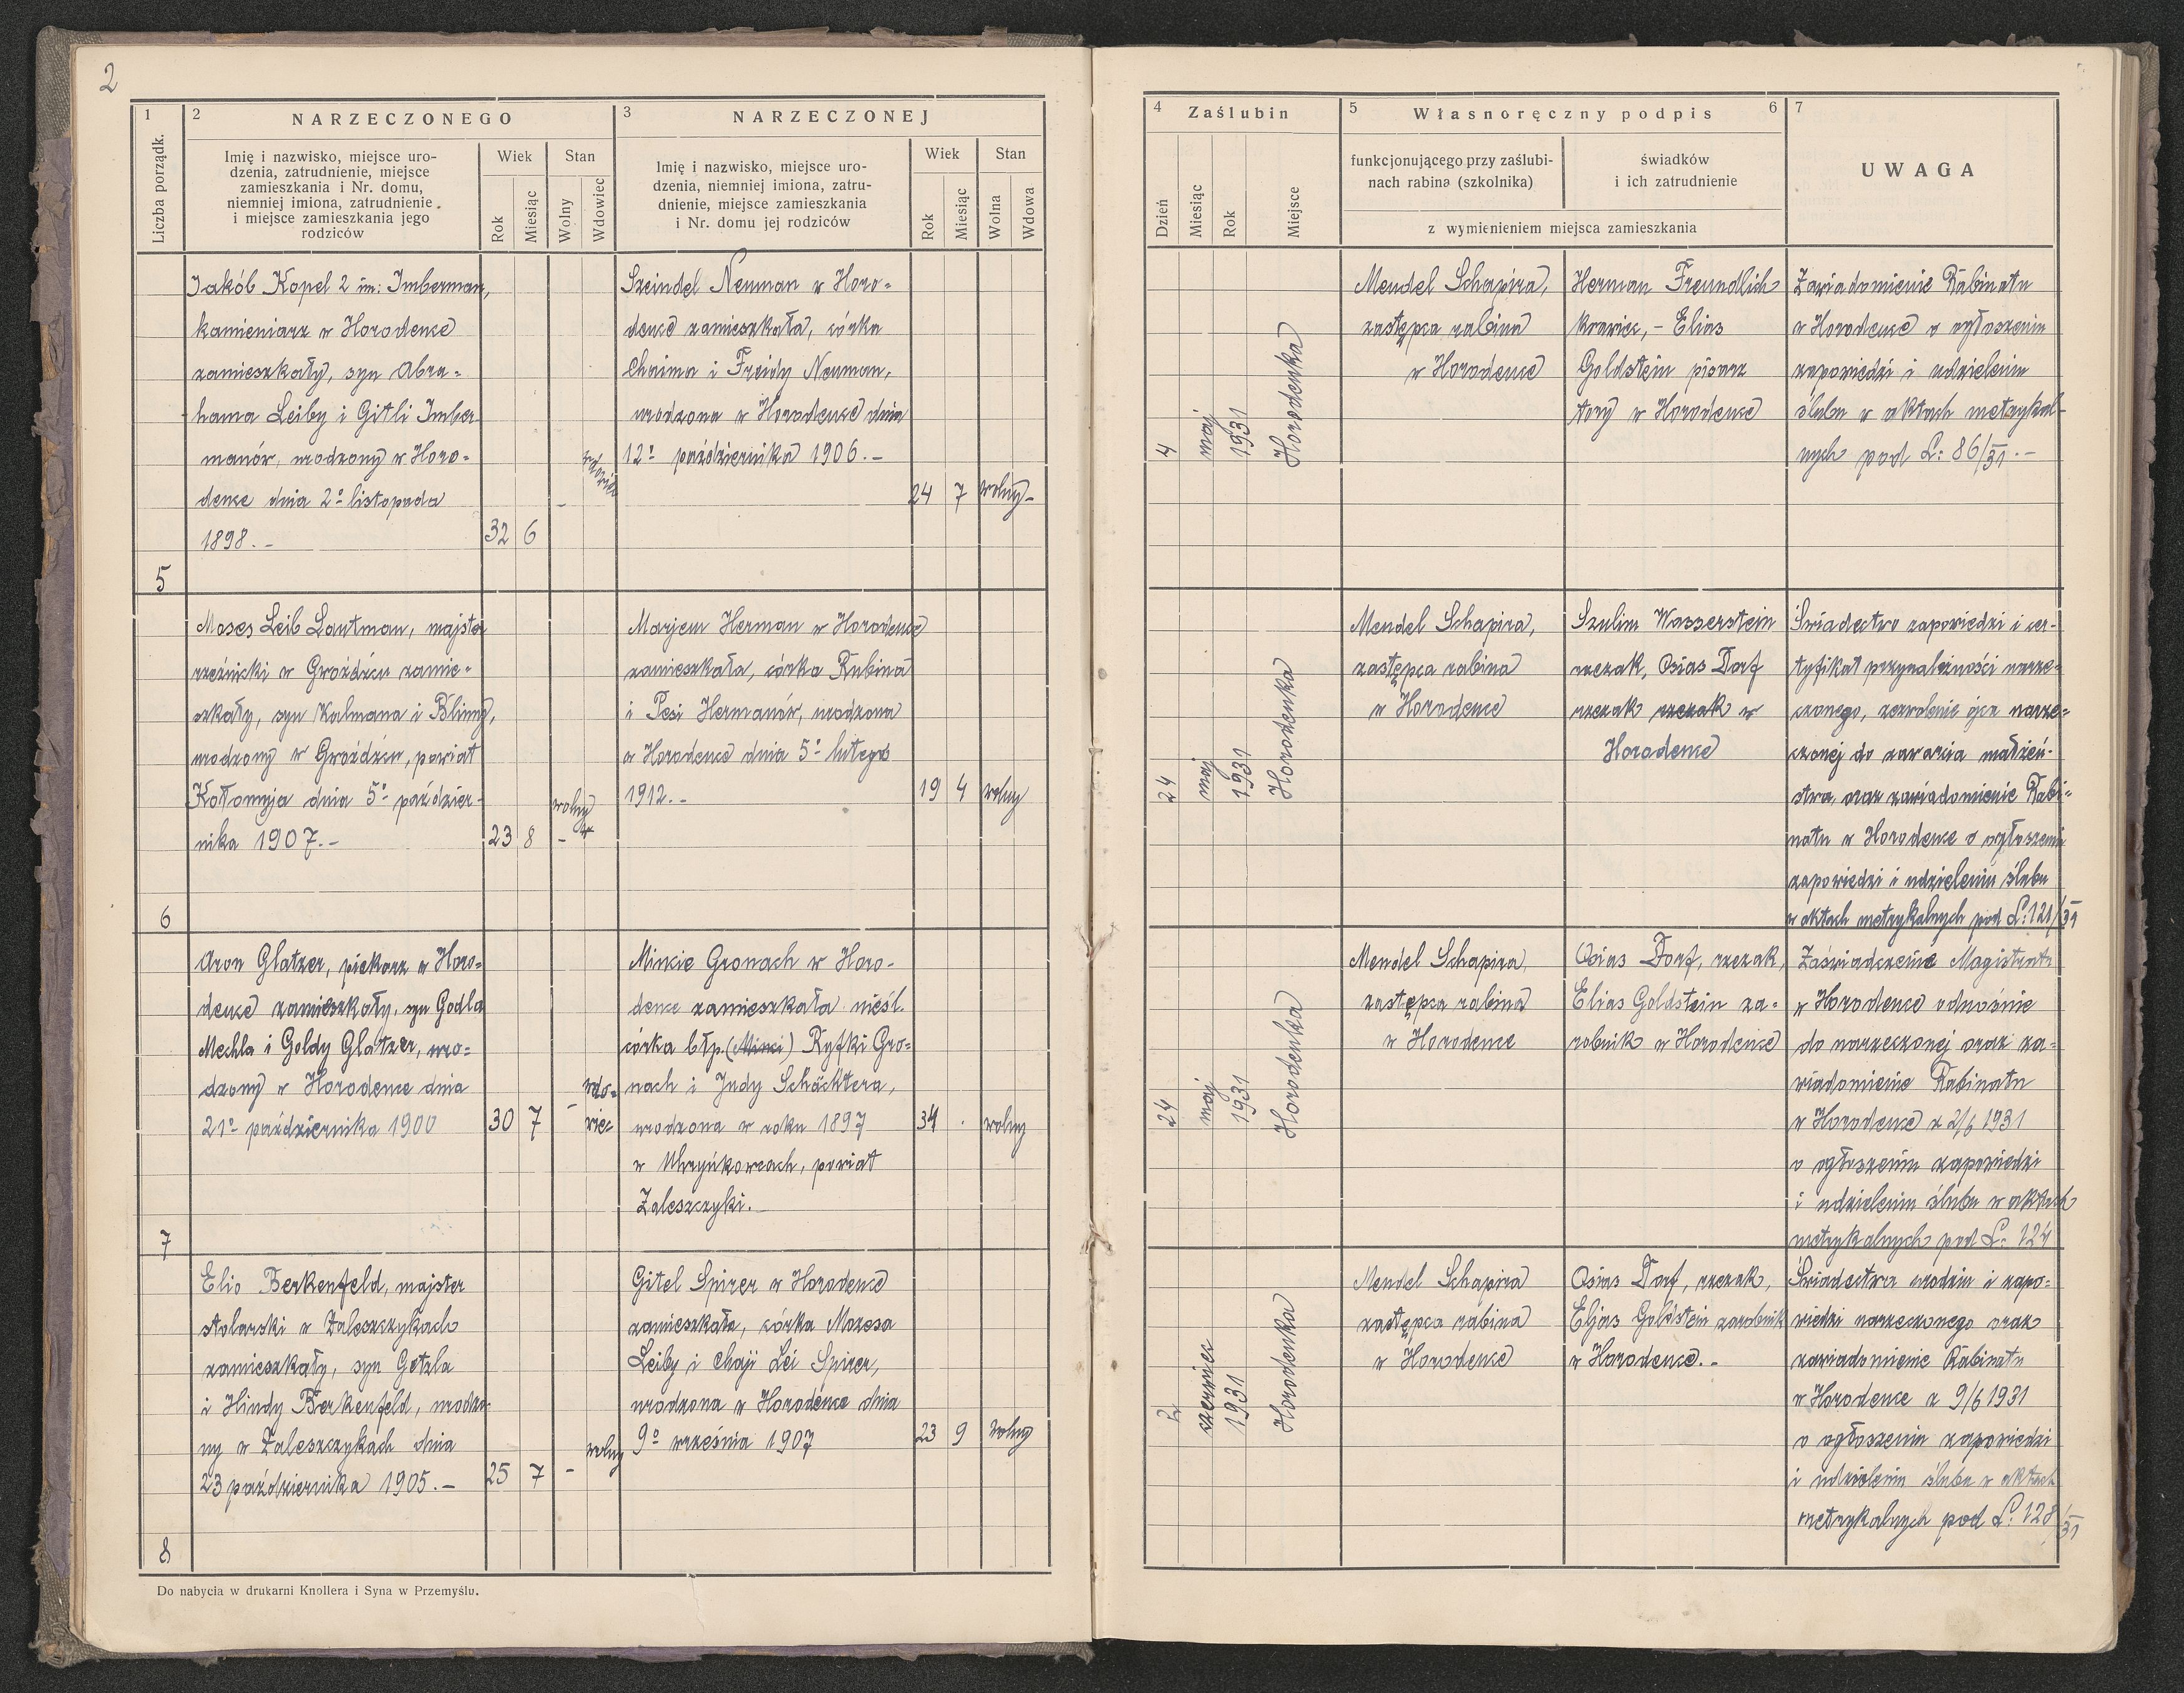 2
1
Liczba porządk.
2
NARZECZONEGO
Imię i nazwisko, miejsce uro-
dzenia, zatrudnienie, miejsce
zamieszkania i Nr. domu,
niemniej imiona, zatrudnienie
i miejsce zamieszkania jego
rodziców
Wiek
Rok
Miesiąc
Stan
Wolny
Wdowiec
3
NARZECZONEJ
Imię i nazwisko, miejsce uro-
dzenia, niemniej imiona, zatru-
dnienie, miejsce zamieszkania
i Nr. domu jej rodziców
Wiek
Rok
Miesiąc
Stan
Wolna
Wdowa
4
Zaślubin
Dzień
Miesiąc
Rok
Miejsce
5
Własnoręczny podpis
6
funkcjonującego przy zaślubi-
nach rabina (szkolnika)
świadków
i ich zatrudnienie
z wymienieniem miejsca zamieszkania
7
UWAGA
5
Jakób Kopel 2 im: Imberman,
kamieniarz w Horodence
zamieszkały, syn Abra-
hama Leiby i Gitli Imber
manów, urodzony w Horo-
dence dnia 2º listopada
1898.-
32
6
-
wdowiec
Szeindel Neuman w Horo-
dence zamieszkała, córka
Chaima i Freidy Neuman,
urodzona w Horodence dnia
12º października 1906.-
24
7
wolny-
4
maj
1931
Horodenka
Mendel Schapira,
zastępca rabina
w Horodence
Herman Freundlich
krawiec, - Elias
Goldstein pisarz
Tory w Horodence
Zawiadomienie Rabinatu
w Horodence o ogłoszeniu
zapowiedzi i udzieleniu
ślubu w aktach metrykal-
nych pod L: 86/31.-
6
Moses Leib Lautman, majster
rzeźnicki w Gwoźdźcu zamie-
szkały, syn Kalmana i Blimy,
urodzony w Gwoźdźcu, powiat
Kołomyja dnia 5º paździer-
nika 1907.-
23
8
wolny
-
Marjem Herman w Horodence
zamieszkała, córka Rubina
i Pesi Hermanów, urodzona
w Horodence dnia 5º lutego
1912.-
19
4
wolny
24
maj
1931
Horodenka
Mendel Schapira,
zastępca rabina
w Horodence
Szulim Wasserstein
rzezak, Osias Dorf
rzezak rzezak w
Horodence
Świadectwo zapowiedzi i cer-
tyfikat przynależności narze-
czonego, zezwolenie ojca narze-
czonej do zawarcia małżeń-
stwa, oraz zawiadomienie Rabi-
natu w Horodence o ogłoszeniu
zapowiedzi i udzieleniu ślubu
w aktach metrykalnych pod L: 121/31
7
Aron Glatzer, piekarz w Horo-
dence zamieszkały, syn Godla
Mechla i Goldy Glatzer, uro-
dzony w Horodence dnia
21º października 1900
30
7
-
wdo-
wiec
Mincie Gronach w Horo-
dence zamieszkała nieśl.
córka błp. (Minci) Ryfki Gro-
nach i Judy Schächtera,
urodzona w roku 1897
w Uhryńkowcach, powiat
Zaleszczyki.-
34
.
wolny
24
maj
1931
Horodenka
Mendel Schapira
zastępca rabina
w Horodence
Osias Dorf, rzezak,
Elias Goldstein za-
robnik w Horodence
Zaświadczenie Magistratu
w Horodence odnośnie
do narzeczonej oraz za-
wiadomienie Rabinatu
w Horodence z 2/6 1931
o ogłoszeniu zapowiedzi
i udzieleniu ślubu w aktach
metrykalnych pod L: 124
8
Elio Berkenfeld, majster
stolarski w Zaleszczykach
zamieszkały, syn Getzla
i Hindy Berkenfeld, urodzo-
ny w Zaleszczykach dnia
23 października 1905.-
25
7
-
wolny
Gitel Spirer w Horodence
zamieszkała, córka Mozesa
Leiby i Chaji Lei Spirer,
urodzona w Horodence dnia
9º września 1907
23
9
wolny
2
czerwiec
1931
Horodenka
Mendel Schapira
zastępca rabina
w Horodence
Osias Dorf, rzezak,
Eljas Goldstein zarobnik
w Horodence.-
Świadectwa urodzin i zapo-
wiedzi narzeczonego oraz
zawiadomienie Rabinatu
w Horodence z 9/6 1931
o ogłoszeniu zapowiedzi
i udzieleniu ślubu w aktach
metrykalnych pod L: 128/31
Do nabycia w drukarni Knollera i Syna w Przemyślu.